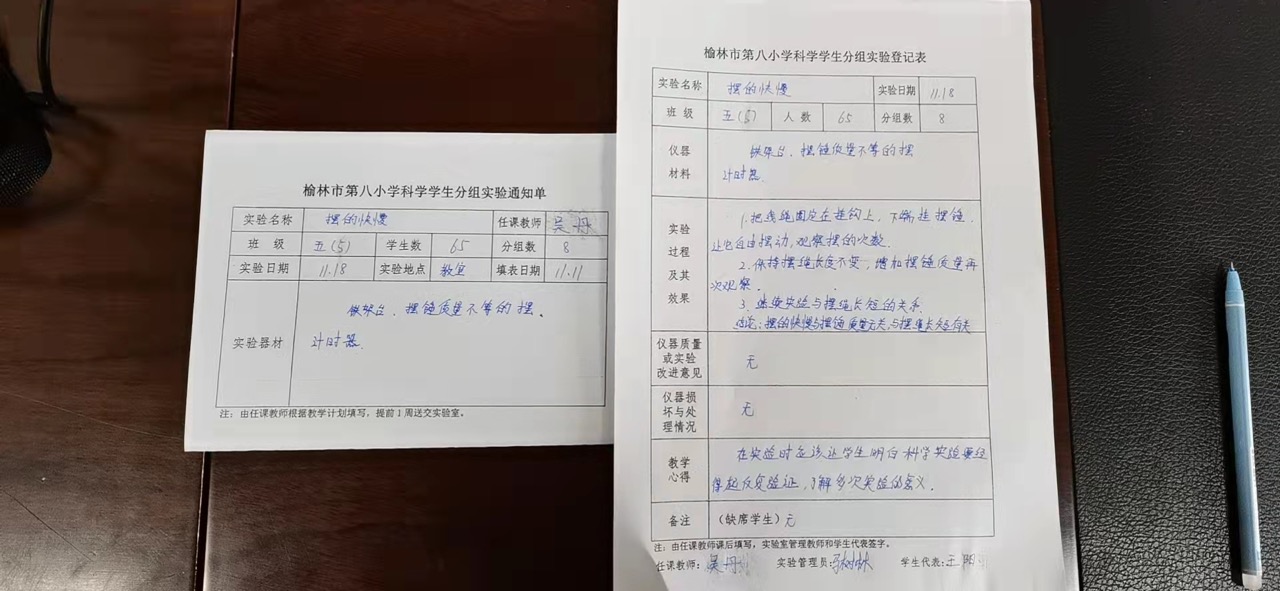 榆林市第八小学科学学生分组实验通知单
实验名称 摆的快慢 任课教师 吴丹
班 级 五(5) 学生数 65 分组数 8
实验日期 11.18 实验地点 教室 填表日期 11.11
实验器材 铁架台、摆锤质量不等的摆、
计时器.
注：由任课教师根据教学计划填写，提前1周送交实验室。
榆林市第八小学科学学生分组实验登记表
实验名称 摆的快慢 实验日期 11.18
班 级 五(5) 人 数 65 分组数 8
仪器材料 铁架台、摆锤质量不等的摆
计时器.
实验过程及其效果
1.把线绳固定在挂钩上，下端挂摆锤，
让它自由摆动，观察摆的次数.
2.保持摆绳长度不变，增加摆锤质量再
次观察.
3.继续实验与摆绳长短的关系.
结论：摆的快慢与摆锤质量无关，与摆绳长短有关
仪器质量或实验改进意见 无
仪器损坏与处理情况 无
教学心得 在实验时应该让学生明白科学实验要经
得起反复验证，了解多次实验的意义.
备注 （缺席学生）无
注：由任课教师课后填写，实验室管理教师和学生代表签字。
任课教师：吴丹 实验管理员： 学生代表：王阳